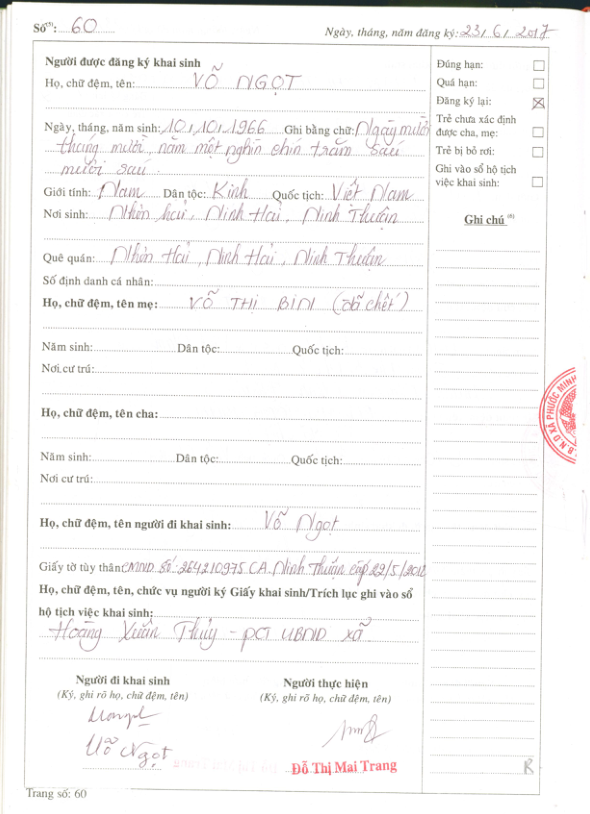 Số⁽⁵⁾: 60
Ngày, tháng, năm đăng ký: 23/6/2017
Người được đăng ký khai sinh
Họ, chữ đệm, tên: VÕ NGỌT
Ngày, tháng, năm sinh: 10/10/1966 Ghi bằng chữ: Ngày mười
tháng mười, năm một nghìn chín trăm sáu
mươi sáu.
Giới tính: Nam Dân tộc: Kinh Quốc tịch: Việt Nam
Nơi sinh: Nhơn hải, Ninh Hải, Ninh Thuận
Quê quán: Nhơn Hải, Ninh Hải, Ninh Thuận
Số định danh cá nhân:
Họ, chữ đệm, tên mẹ: VÕ THỊ BINI (đã chết)
Năm sinh: Dân tộc: Quốc tịch:
Nơi cư trú:
Họ, chữ đệm, tên cha:
Năm sinh: Dân tộc: Quốc tịch:
Nơi cư trú:
Họ, chữ đệm, tên người đi khai sinh: Võ Ngọt
Giấy tờ tùy thân: CMND số: 264210975 CA. Ninh Thuận cấp 22/5/2012
Họ, chữ đệm, tên, chức vụ người ký Giấy khai sinh/Trích lục ghi vào sổ
hộ tịch việc khai sinh:
Hoàng Xuân Thủy - PCT UBND xã
Người đi khai sinh
(Ký, ghi rõ họ, chữ đệm, tên)
Võ Ngọt
Người thực hiện
(Ký, ghi rõ họ, chữ đệm, tên)
Đỗ Thị Mai Trang
Trang số: 60
Đúng hạn:
Quá hạn:
Đăng ký lại:
Trẻ chưa xác định
được cha, mẹ:
Trẻ bị bỏ rơi:
Ghi vào sổ hộ tịch
việc khai sinh:
Ghi chú ⁽⁶⁾
U.B.N.D XÃ PHƯỚC MINH